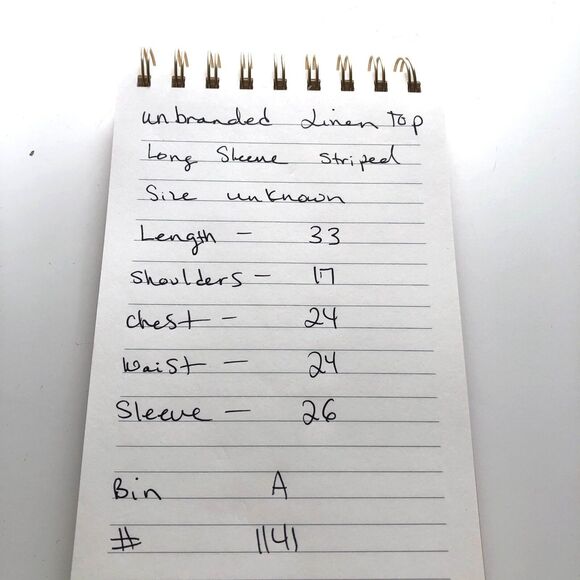 unbranded Linen Top
Long Sleeve Striped
Size unknown
Length - 33
Shoulders - 17
Chest - 24
Waist - 24
Sleeve - 26
Bin A
# 1141